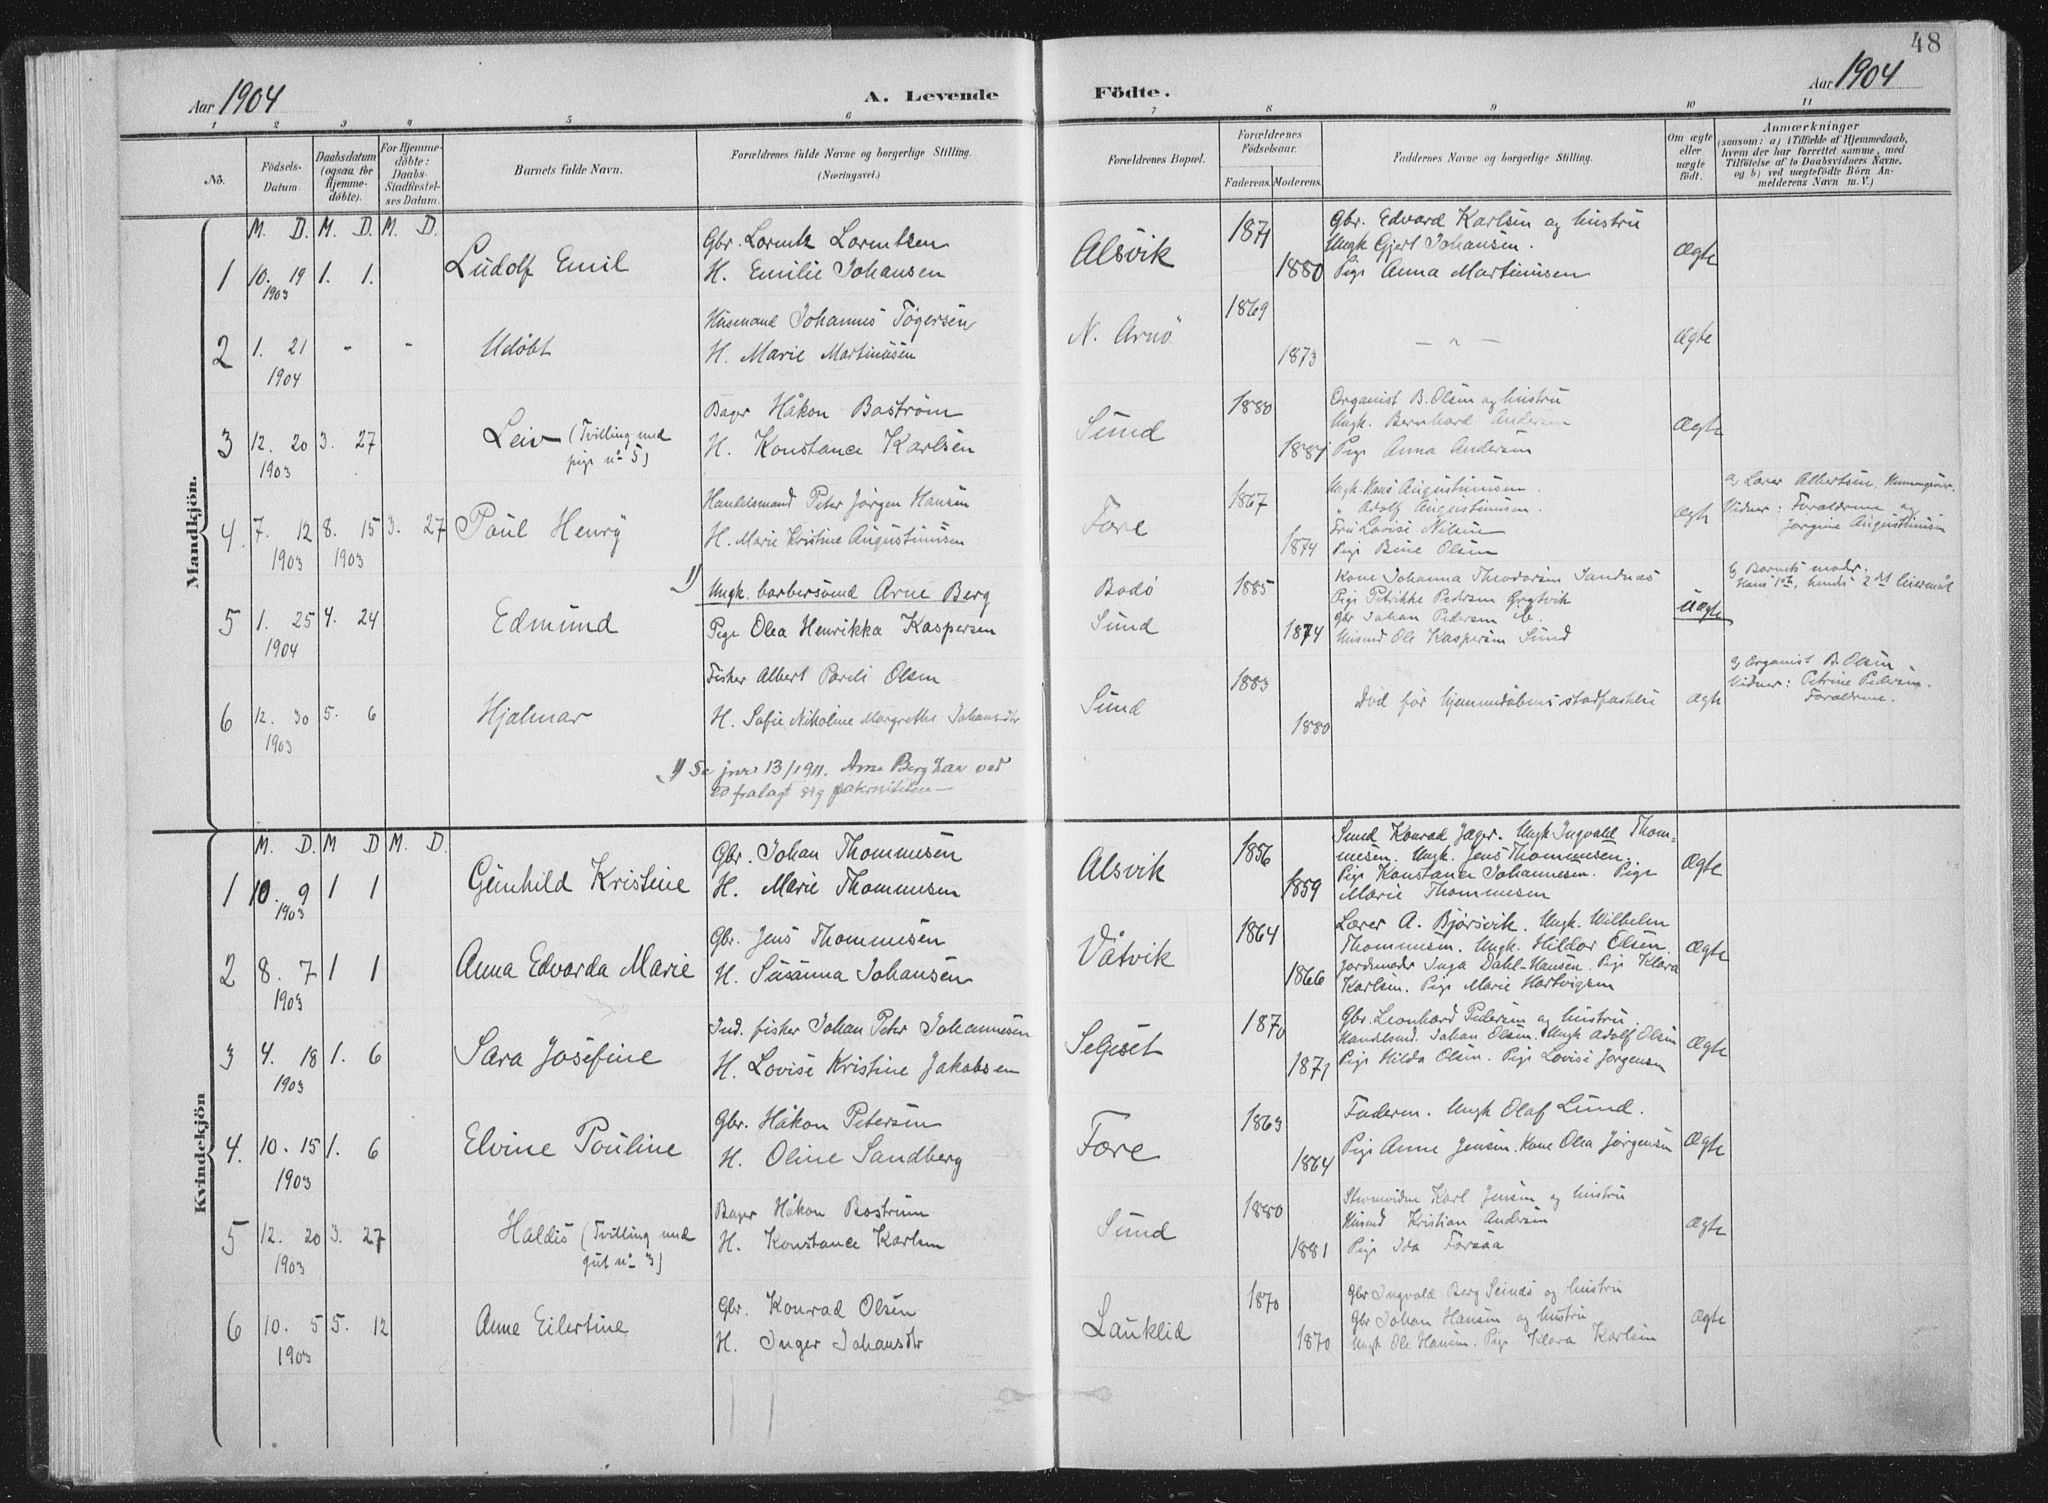 48
Aar 1904
A. Levende
Födte.
Aar 1904
1 2 3 4 5 6 7 8 9 10 11
No.
Födsels-
Datum
Daabsdatum
(ogsaa for
Hjemme-
döbte).
For Hjemme-
döbte:
Daabs-
Stadfæstel-
ses Datum.
Barnets fulde Navn.
Forældrenes fulde Navne og borgerlige Stilling.
(Næringsvei.)
Forældrenes Bopæl.
Forældrenes
Födselsaar.
Faderens. Moderens.
Faddernes Navne og borgerlige Stilling.
Om ægte
eller
uægte
födt.
Anmærkninger
(saasom: a) i Tilfælde af Hjemmedaab,
hvem der har forrettet samme, med
Tilföielse af to Daabsvidners Navne.
og b) ved uægtefödte Börn An-
melderens Navn m. V.)
Mandkjön.
M. D. M. D. M. D.
1 10. 19 1. 1.
1903
Ludolf Emil
Gbr. Lorentz Lorentzen
H. Emilie Johansen
Alsvik
1871
1880
Gbr. Edvard Karlsen og hustru
Ungk. Gjert Johansen.
Pige Anna Martinusen
Ægte
2 1. 21 - -
1904
Udøbt
Husmand Johannes Tøgersen
H. Marie Martinusen
N. Arnø
1869
1873
— " —
Ægte
3 12. 20 3. 27
1903
Leiv (Tvilling med
pige no 5)
Bager Håkon Boström
H. Konstance Karlsen
Sund
1880
1881
Organist B. Olsen og hustru
Ungk. Bernhard Andersen
Pige Anna Andersen
Ægte
4. 7. 12 8. 15 3. 27
1903 1903
Paul Henry
Handelsmand Peter Jørgen Hansen
H. Marie Kristine Augustinusen
Fore
1867
1874
Ungk. Hans Augustinusen.
" Adolf Augustinusen.
Fru Lovise Nilsen
Pige Bine Olsen
Ægte
a) Lærer Albertsen,
Vidner: Forældrene og
Jørgine Augustinusen
5 1. 25 4. 24
1904
Edmund
1) Ungk. barbersvend Arne Berg
Pige Olea Henrikka Kaspersen
Bodø
Sund
1885
1874
Kone Johanna Theodorsen Sandnæs
Pige Petrikke Pedersen
Gbr Johan Pedersen
Husmd Ole Kaspersen Sund
Uægte
b) Barnets moder.
Hans 1ste, hendes 2det leiermål
6 12. 30 5. 6
1903
Hjalmar
Fisker Albert Pareli Olsen
H. Sofie Nikoline Margrethe Johansdtr
Sund
1883
1880
Død før hjemmedåbens stadfæstelse
Ægte
a) Organist B. Olsen
Vidner: Petrine Pedersen.
Forældrene.
1) Se jnr. 13/1911. Arne Berg har ved
ed fralagt sig paterniteten —
Kvindekjön
M. D. M D M. D.
1 10. 9 1 1
1903
Gunhild Kristine
Gbr. Johan Thommesen
H. Marie Thommesen
Alsvik
1856
1859
Smed Konrad Jæger. Ungk Ingvald Thom-
mesen. Ungk. Jens Thommesen.
Pige Konstance Johannesen. Pige
Marie Thommesen
Ægte
2 8. 7 1 1
1903
Anna Edvarda Marie
Gbr. Jens Thommesen
H. Susanna Johansen
Våtvik
1864
1866
Lærer A. Bjørsvik. Ungk. Wilhelm
Thommesen. Ungk. Hildor Olsen.
Jordmoder Inga Dahl-Hansen. Pige Klara
Karlsen. Pige Marie Hartvigsen
Ægte
3 4. 18 1. 6
1903
Sara Josefine
Ind. fisker Johan Peter Johannesen
H. Lovise Kristine Jakobsen
Selseset
1870
1871
Gbr. Leonhard Pedersen og hustru
Handlsmd. Johan Olsen. Ungk Adolf Olsen
Pige Hilda Olsen. Pige Lovise Jørgensen
Ægte
4. 10. 15 1. 6
1903
Elvine Pouline
Gbr. Håkon Petersen
H. Oline Sandberg
Fore
1863
1864
Faderen. Ungk Olaf Lund.
Pige Anne Jensen. Kone Olea Jørgensen
Ægte
5 12. 20 3. 27
1903
Haldis (Tvilling med
gut no 3)
Bager Håkon Bostrøm
H. Konstance Karlsen
Sund
1880
1881
Karl Jensen og hustru
Husmd Kristian Andersen
Pige Ida Forsaa
Ægte
6 10. 5 5. 12
1903
Anne Eilertine
Gbr. Konrad Olsen
H. Inger Johansdtr
Lauklid
1870
1870
Gbr Ingvald Berg Seines og hustru
Gbr Johan Hansen og hustru
Ungk Ole Hansen. Pige Klara Karlsen
Ægte